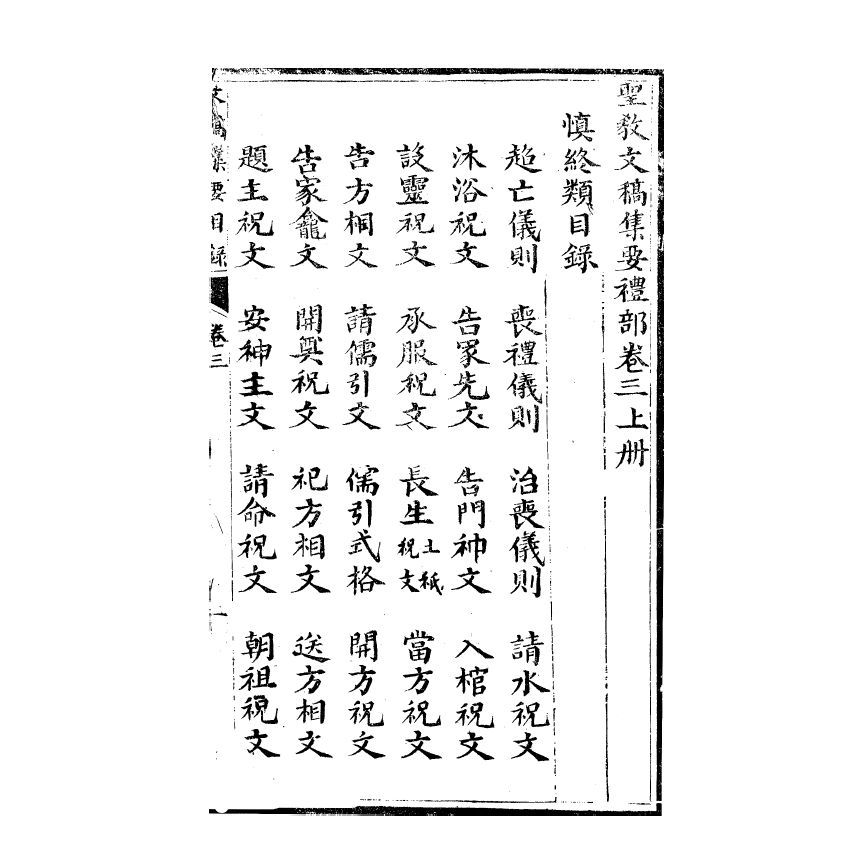 聖教文稿集要禮部卷三上册
慎終類目錄
趨亡儀則 喪禮儀則 治喪儀則 請水祝文
沐浴祝文 告冢先文 告門神文 入棺祝文
設靈祝文 承服祝文 長生土紙祝文 當方祝文
告方相文 請儒引文 儒引式格 開方祝文
告家龕文 開奠祝文 祀方相文 送方相文
題主祝文 安神主文 請命祝文 朝祖祝文
文稿集要目錄 卷三 一